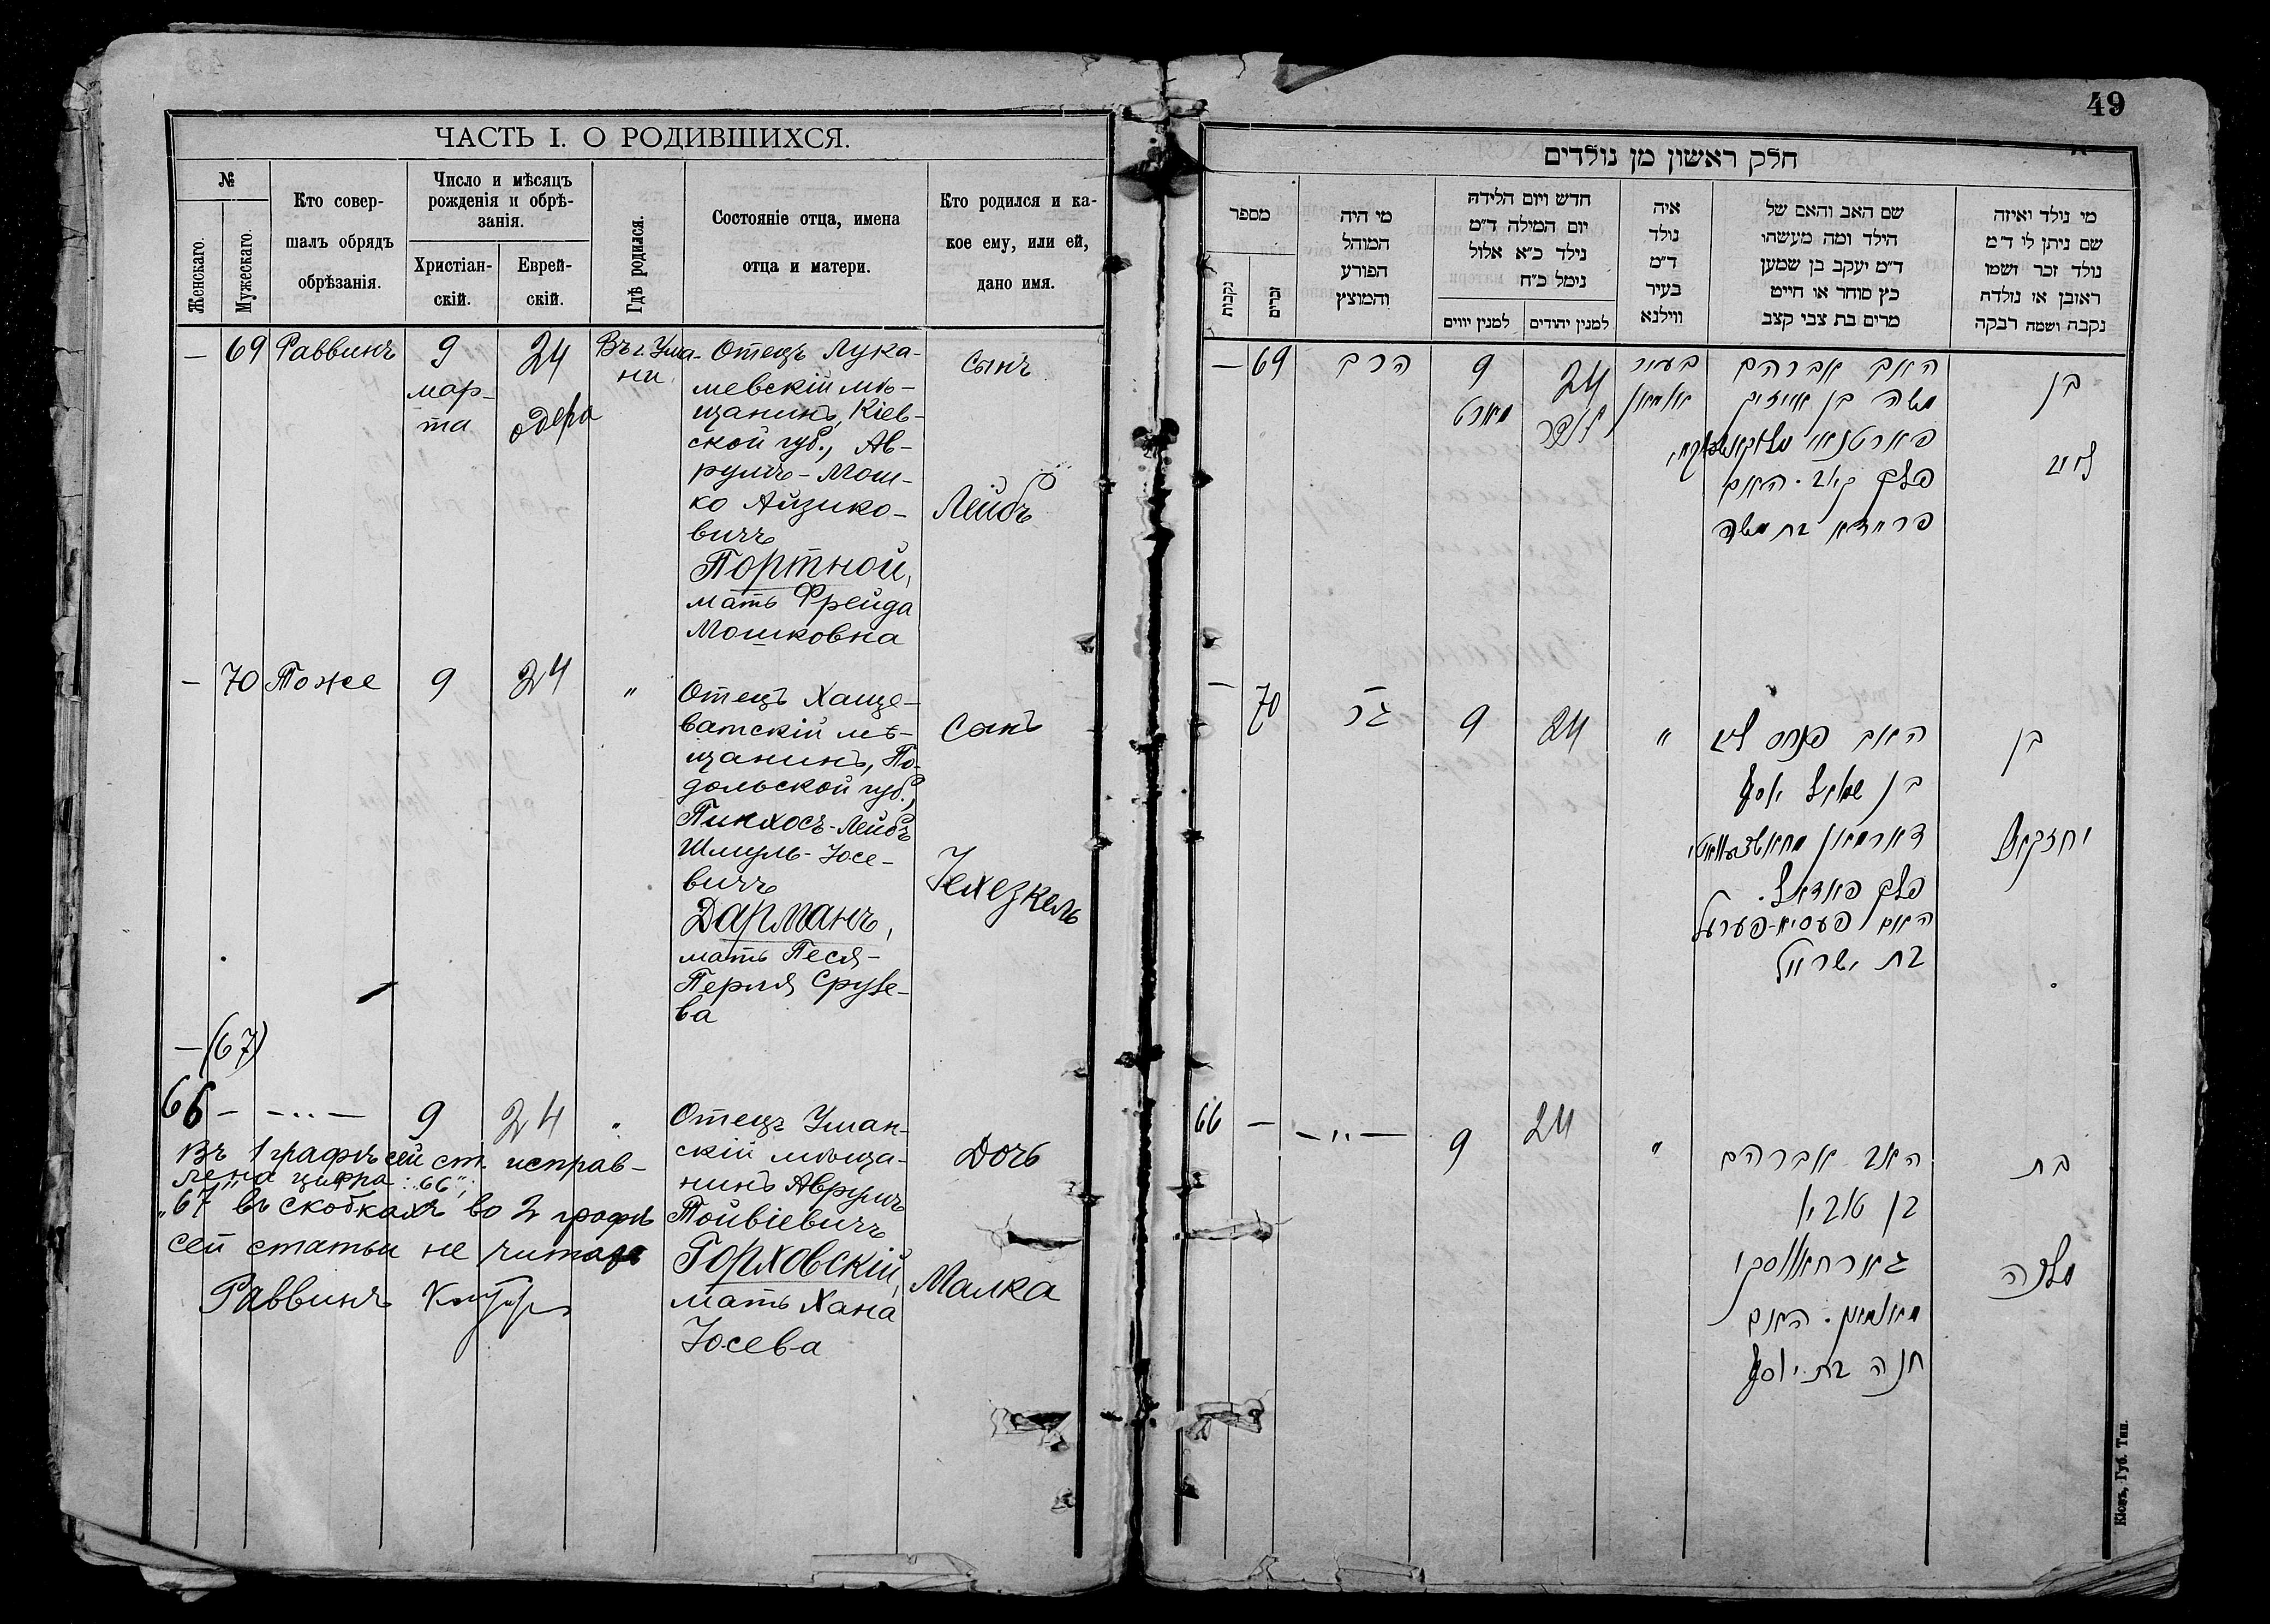 49
ЧАСТЬ I. О РОДИВШИХСЯ.
№
Женскаго.
Мужескаго.
Кто совер-
шалъ обрядъ
обрѣзанія.
Число и мѣсяцъ
рожденія и обрѣ-
занія.
Христіан-
скій.
Еврей-
скій.
Гдѣ родился.
Состояніе отца, имена
отца и матери.
Кто родился и ка-
кое ему, или ей,
дано имя.
— 69 Раввинъ 9 мар-
та
24
Адера
Въ г. Ума-
ни
Отецъ Лука-
шевскій мѣ-
щанинъ, Кіев-
ской губ., Ав-
румъ-Мош-
ко Айзико-
вичъ
Портной,
мать Фрейда
Мошковна
Сынъ
Лейбъ
— 70 Тоже 9 24 "
Отецъ Хаще-
ватскій мѣ-
щанинъ, По-
дольской губ.,
Пинхосъ-Лейбъ
Шмуль-Іосе-
вичъ
Дарманъ,
мать Песя-
Перля Сруле-
ва
Сынъ
Іехезкель
— (67)
66 — — " — 9 24 "
Отецъ Уман-
скій мѣща-
нинъ Аврумъ
Тойвіевичъ
Горховскій,
мать Хана
Іосева
Дочь
Малка
Въ 1 графѣ сей ст. исправ-
лена цифра "66",
"67" въ скобкахъ во 2 графѣ
сей статьи не читать
Раввинъ
חלק ראשון מן נולדים
מספר
נקבות
זכרים
מי היה
המוהל
הפורע
והמוצץ
חדש ויום הלידה
יום המילה ד״מ
נילד כ״א אלול
נימל כ״ח
למנין יווים
למנין יהודים
איה
נולד
ד״מ
בעיר
ווילנא
שם האב והאם של
הילד ומה מעשהו
ד״מ יעקב בן שמען
כץ סוחר או חייט
מרים בת צבי קצב
מי נולד ואיזה
שם ניתן לו ד״מ
נולד זכר ושמו
ראובן או נולדה
נקבה ושמה רבקה
— 69 הרב 9
מארט
24
אדר
בעיר
אומאן
האב אברהם
משה בן אייזיק
פארטנאי
פלך קיוב. האם
פריידא בת משה
בן
ליב
— 70 גם 9 24 "
האב פנחס ליב
בן שמואל יוסף
דארמאן
פלך פאדאל.
האם פעסיא-פערעל
בת ישראל
בן
יחזקאל
66 — — " — 9 24 "
האב אברהם
בן טוביא
גארחאווסקי
מאומאן. האם
חנה בת יוסף
בת
מלכה
Кіевъ, Губ. Тип.